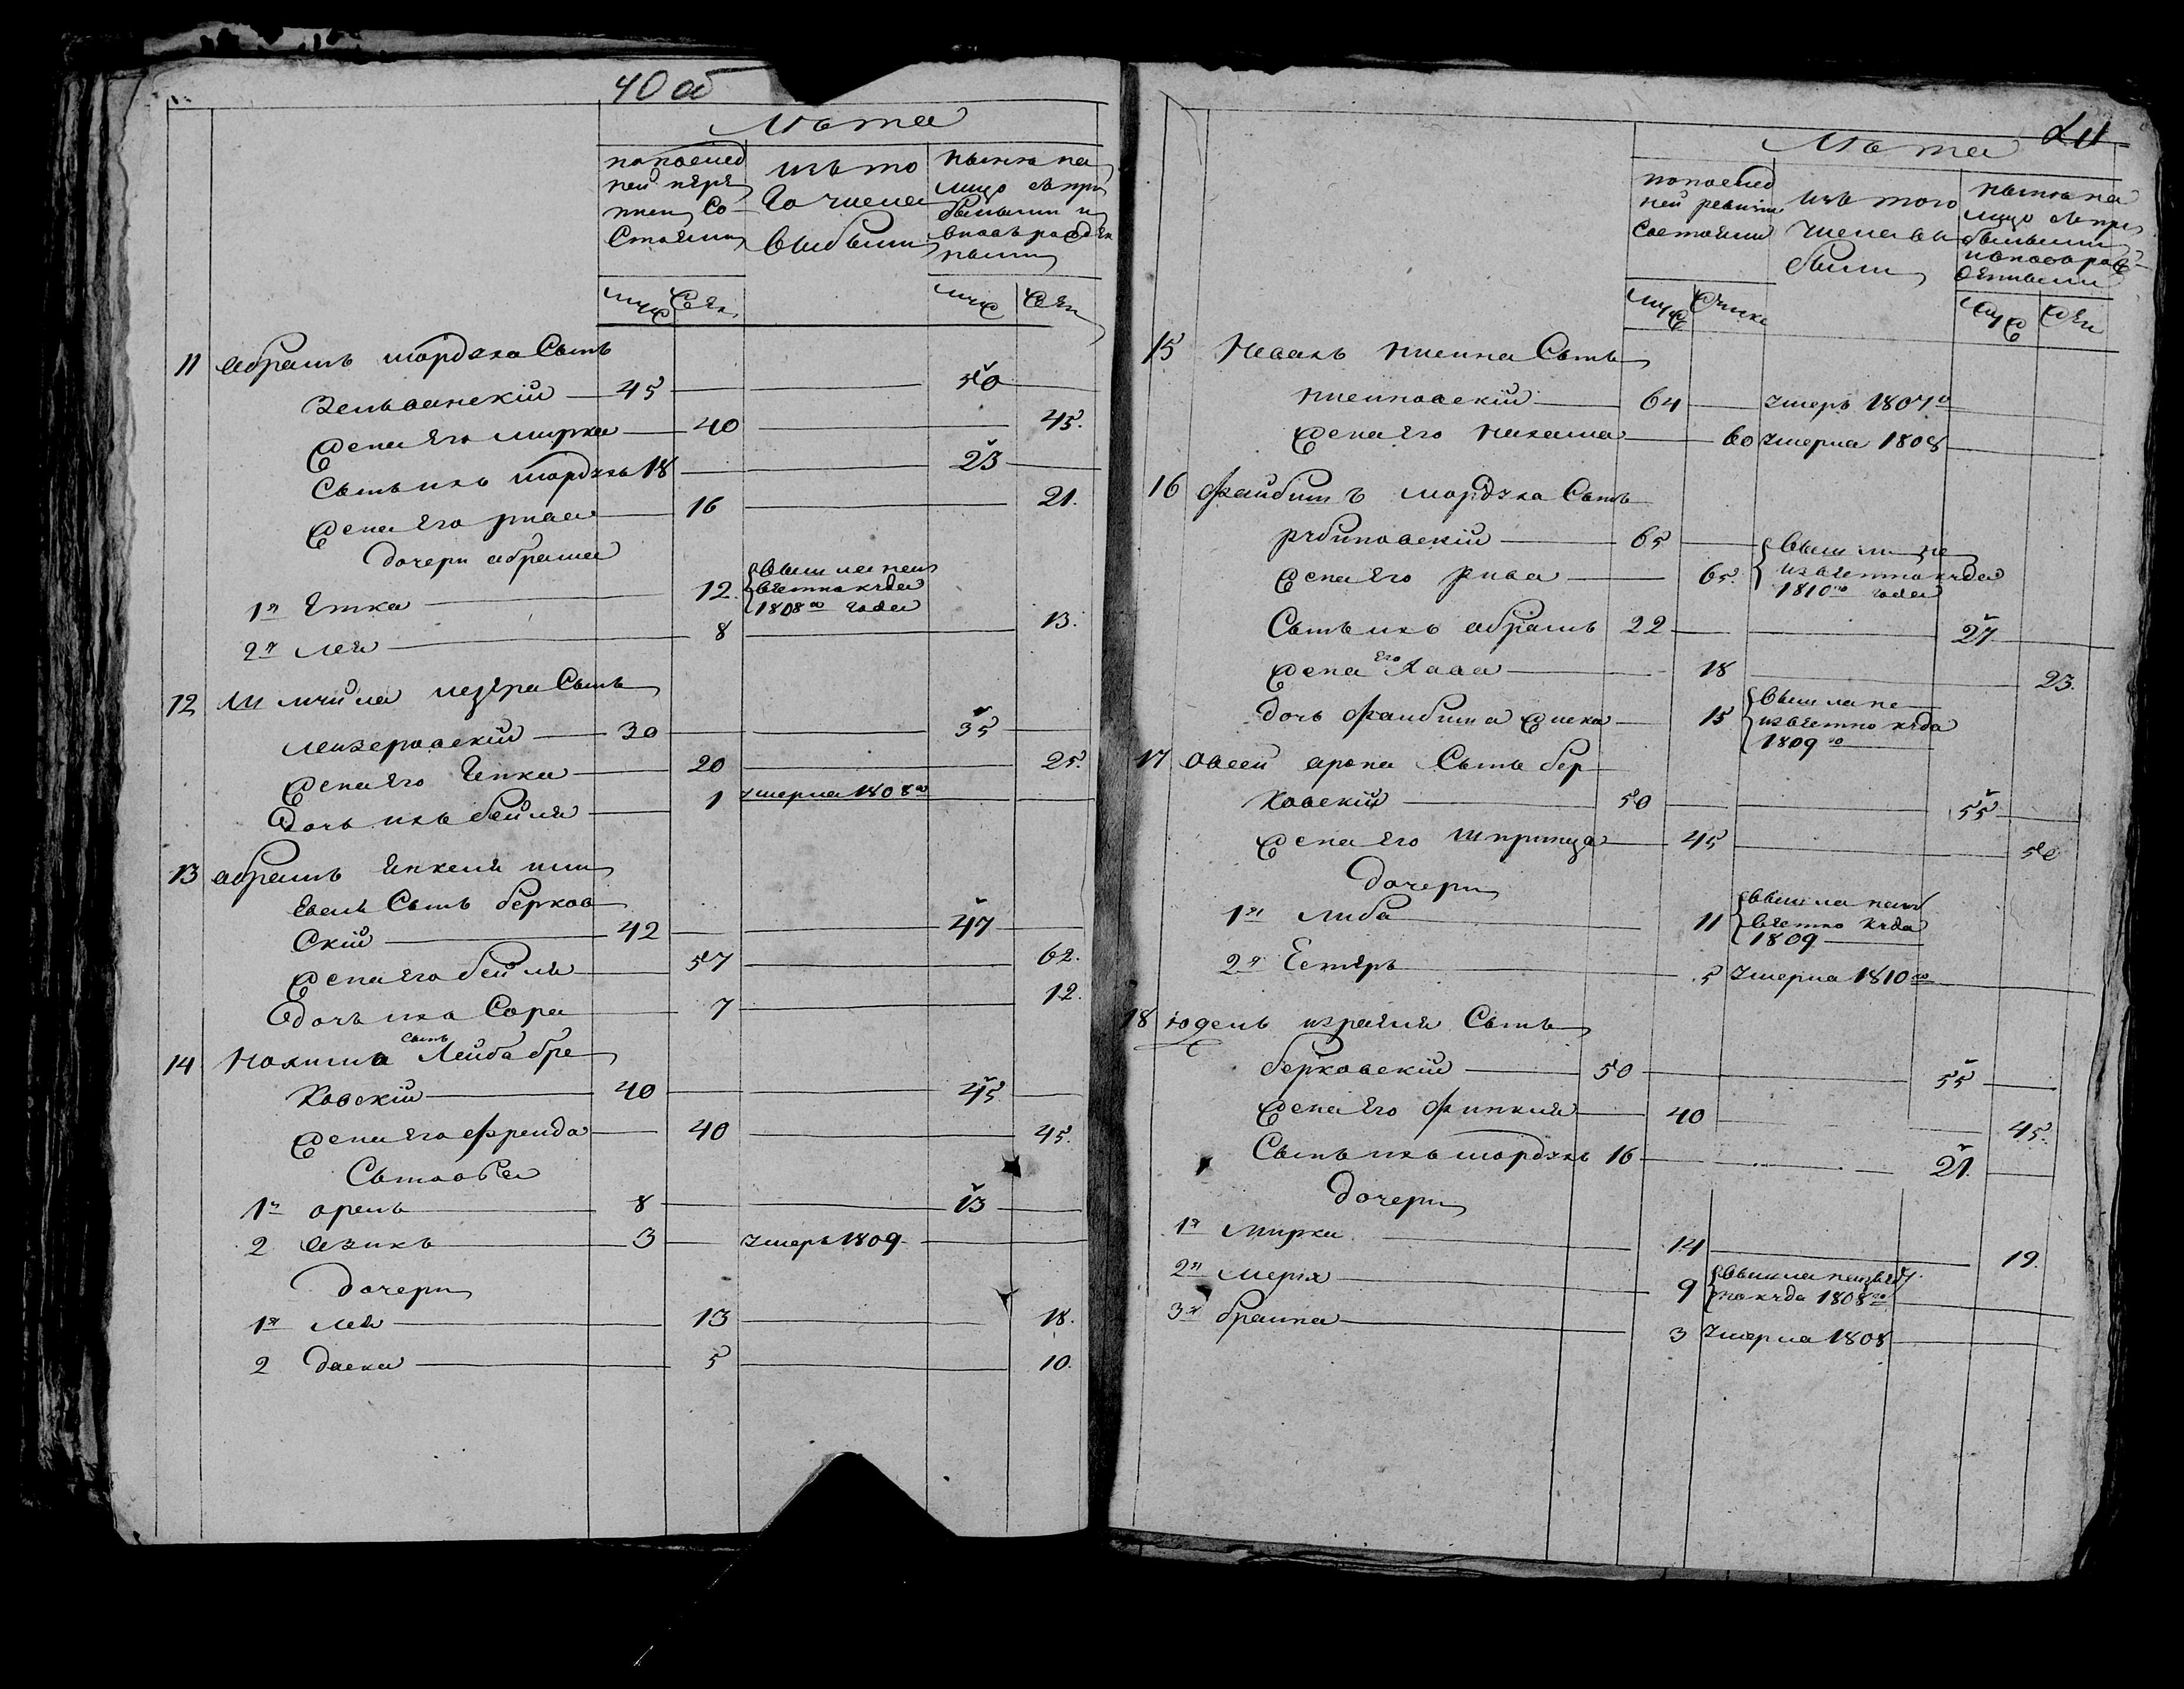 40 об
Лѣта
по послед
ней пере
писи Со-
Стояли
изъ то
го числа
выбыли
ныне на
лицо съ при
былыми и
вновь рожден
ными
муж Жен
муж Жен
11 абрамъ мордеха Сынъ
Зельванскiй 45 50
Жена Его мирка 40 45.
Сынъ ихъ мордехъ 18 23
Жена Его рива 16 21.
дочери абрама
1я Етка 12. вышла неиз
вестно куда
1808го года
2я лея 8 13.
12 Сынъ
лейзеровскiй 30 35
Жена Его Ципка 20 25.
Дочь ихъ бейля 1 умерла 1808го
13 абрамъ Янкеля
Сынъ берков
Скiй 42 47
Жена Его бейля 57 62.
Дочь ихъ Сора 7 12.
14 Нохимъ Сынъ Лейба бре
Ковскiй 40 45
Жена Его Фрейда 40 45.
Сыновья
1й орель 8 13
2 азикъ 3 умеръ 1809
дочери
1я лея 13 18.
2 даска 5 10.
41
Лѣта
по послед
ней ревизiи
Состояли
изъ того
числа вы
были
ныне на
лицо съ при
былыми
и вновь рож
денными
муж Женск
муж Жен
15 Сынъ
64 умеръ 1807го
Жена Его Нехама 60 умерла 1808
16 Файбишъ мордеха Сынъ
рубиновскiй 65 вышли не
Жена Его Рива 65. известно куда
1810го года
Сынъ ихъ абрамъ 22 27
Жена Его Хава 18 23.
дочь Файбиша Жиска 15 вышла не
известно куда
1809го
17 Овсей арона Сынъ бер
Ковскiй 50 55
Жена Его Шпринца 45 50
дочери
1я либа 11 вышла неиз
вестно куда
1809
2я Естеръ 5 умерла 1810го
18 юдель израиля Сынъ
берковскiй 50 55
Жена Его Финкля 40 45.
Сынъ ихъ мордехъ 16 21.
дочери
1я мирка 14 19.
2я меря 9 вышла неизвест
но куда 1808го
3я браина 3 умерла 1808